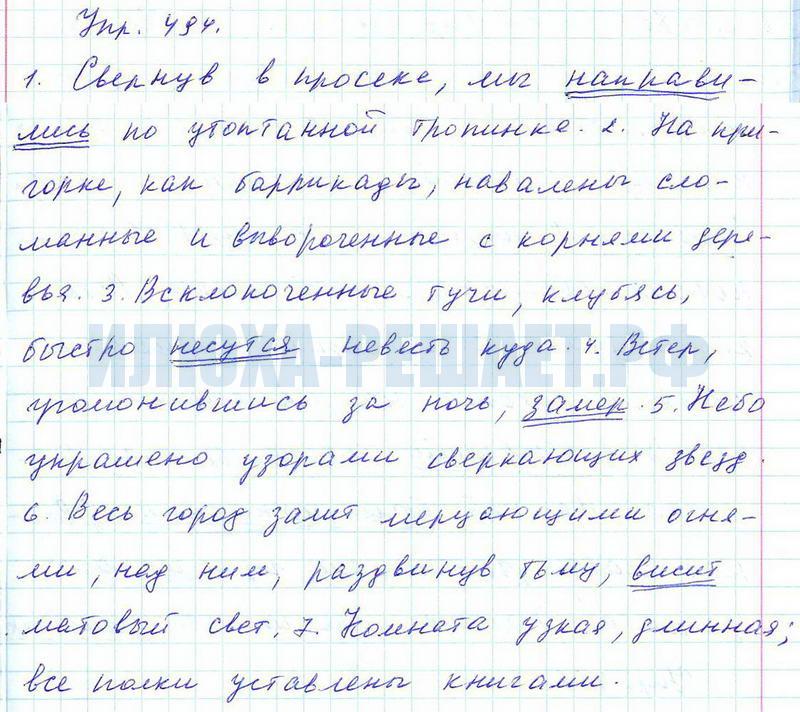 Упр. 494.
1. Свернув в просеке, мы направи-
лись по утоптанной тропинке. 2. На при-
горке, как баррикады, навалены сло-
манные и вывороченные с корнями дере-
вья. 3. Всклокоченные тучи, клубясь,
быстро несутся невесть куда. 4. Ветер,
угомонившись за ночь, замер. 5. Небо
украшено узорами сверкающих звезд.
6. Весь город залит мерцающими огня-
ми, над ним, раздвинув тьму, висит
матовый свет. 7. Комната узкая, длинная;
все полки уставлены книгами.
ИЛЮХА-РЕШАЕТ.РФ